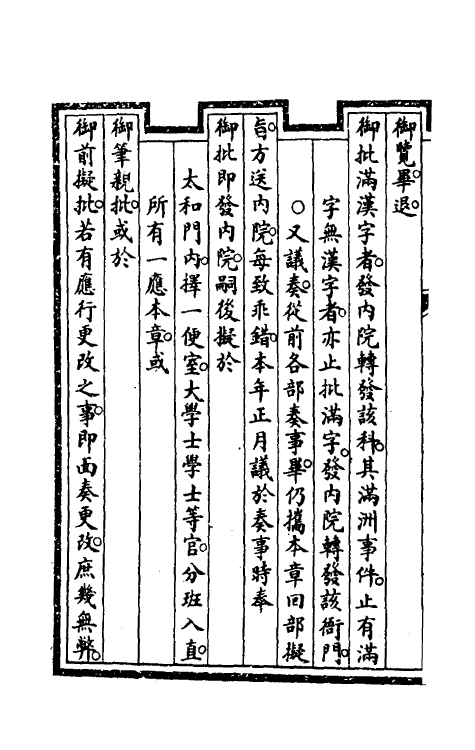 御覽畢退。
御批滿漢字者。發内院轉發該科。其滿洲事件。止有滿
字無漢字者。亦止批滿字。發内院轉發該衙門。
○又議奏。從前各部奏事畢。仍攜本章回部擬
旨。方送内院。每致乖錯。本年正月議於奏事時奉
御批即發内院。嗣後擬於
太和門内。擇一便室。大學士學士等官。分班入直。
所有一應本章。或
御筆親批。或於
御前擬批。若有應行更改之事。即面奏更改。庶幾無弊。